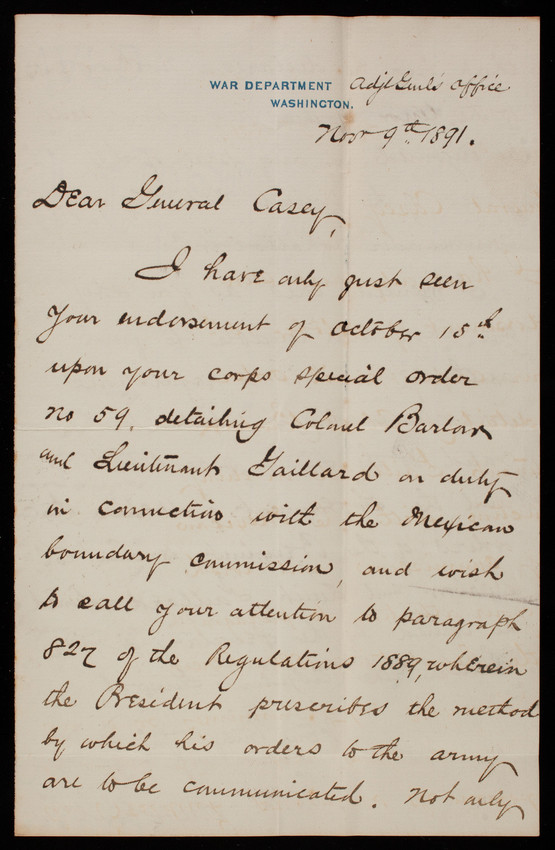 WAR DEPARTMENT Adjt Genl's Office
WASHINGTON.
Novr 9th 1891.
Dear General Casey,
I have only just seen
your endorsement of October 15th
upon your corps special order
No 59, detailing Colonel Barlow
and Lieutenant Gaillard on duty
in connection with the Mexican
boundary commission, and wish
to call your attention to paragraph
827 of the Regulations 1889, wherein
the President prescribes the method
by which his orders to the army
are to be communicated. Not only